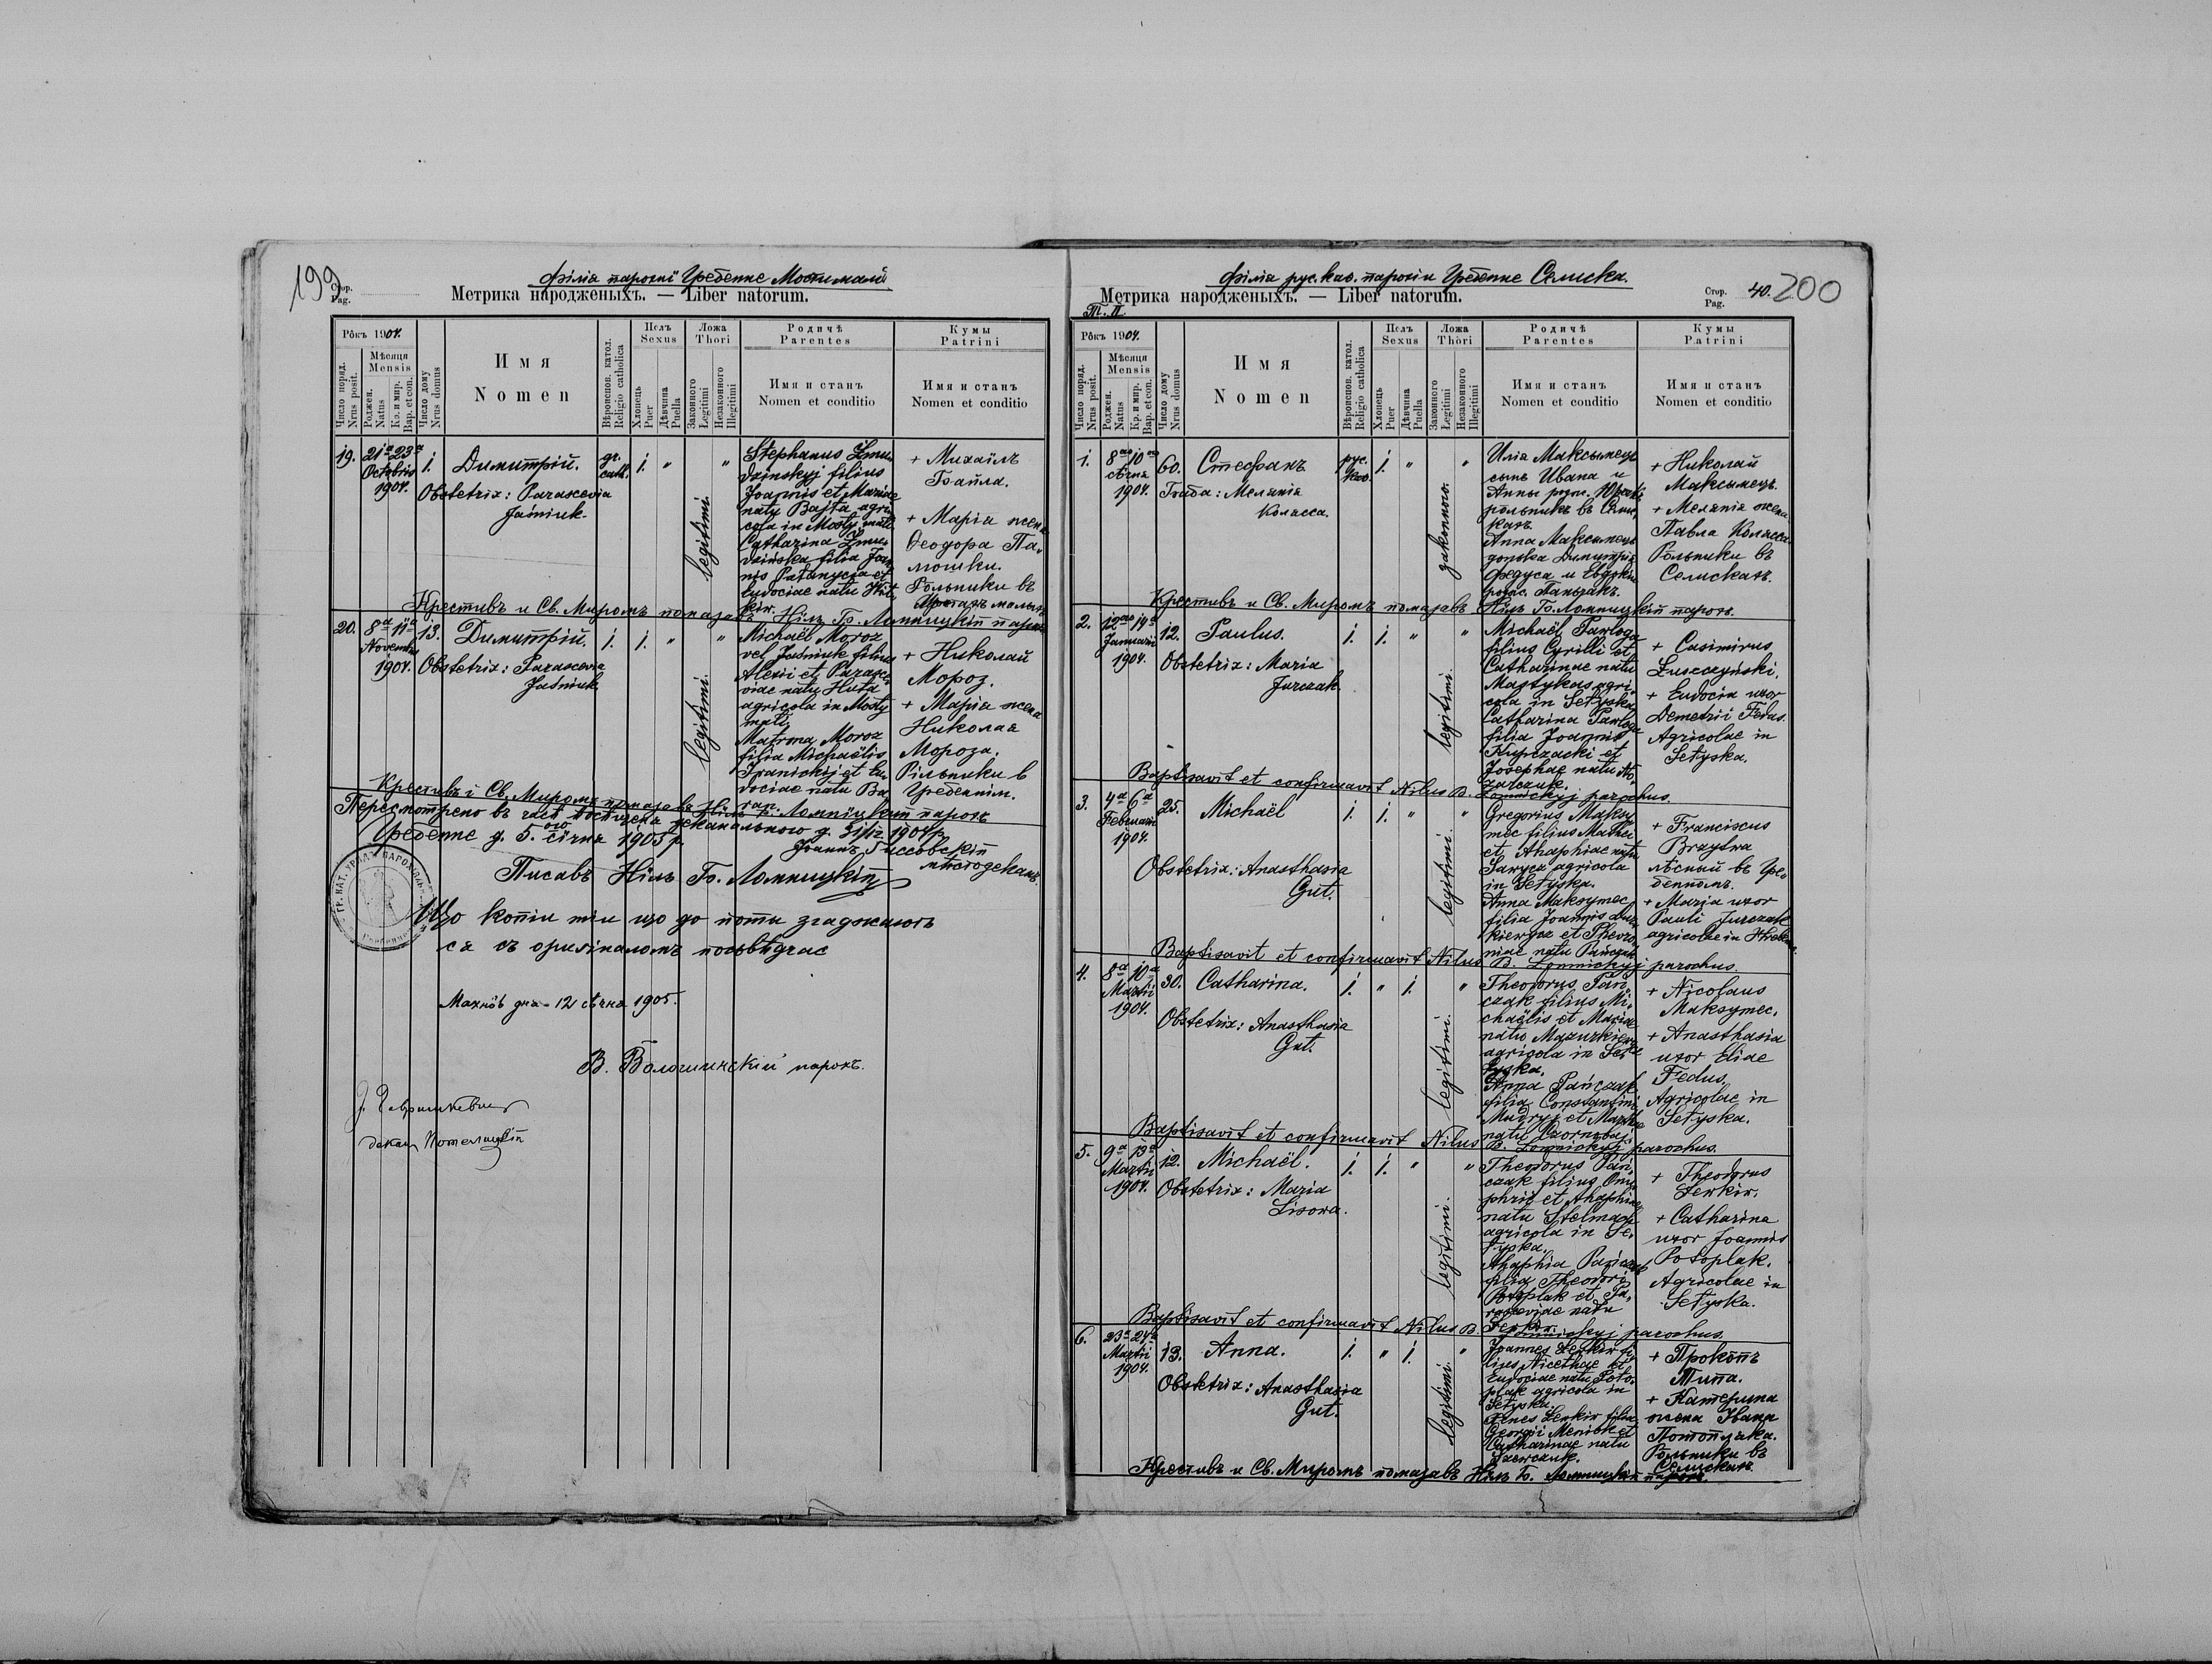 199
Філія парохії Гребенне Мостималі
Стор.
Pag.
Метрика народженыхъ. — Liber natorum.
Рôкъ 1904.
Число поряд.
Nrus posit.
Мѣсяця
Mensis
Роджен.
Natus
Кр. и мир.
Bap. et con.
Число дому
Nrus domus
Имя
Nomen
Вѣроиспов. катол.
Religio catholica
Полъ
Sexus
Хлопець
Puer
Дѣвчина
Puella
Ложа
Thori
Законного
Legitimi
Незаконного
Illegitimi
Родичѣ
Parentes
Имя и станъ
Nomen et conditio
Кумы
Patrini
Имя и станъ
Nomen et conditio
19. 21a 23a
Octobris
1904.
1. Димитрій.
gr.
cath.
1. " "
Obstetrix: Parascevia
Jaśniuk.
legitimi.
Stephanus Żmu-
dzinskyj filius
Joannis et Mariae
natu Bajta agri-
cola in Mosty małe
Catharina Żmu-
dzińska filia Joan-
nis Patanycia et
Eudociae natu
+ Михаилъ
Байла.
+ Марія жена
Ѳеодора Па-
мошки.
Рольники въ
Мостахъ малыхъ
Крестивъ и Св. Миромъ помазавъ Нілъ Б. Ломницкій парохъ
20. 8a 11a
Novembris
1904.
13. Димитрій. 1. 1. " "
Obstetrix: Parascevia
Jaśniuk
legitimi.
Michaël Moroz
vel Jaśniuk filius
Alexii et Parasce-
viae natu Huta
agricola in Mosty
małe
Matrona Moroz
filia Michaëlis
Iranickij et Eu-
dociae natu Ba-
ran.
+ Николай
Мороз.
+ Марія жена
Николая
Мороза.
Рільники в
Гребеннім.
Крестивъ і Св. Миромъ помазавъ Нілъ Б. Ломніцкій парох
Пересмотрено въ часѣ посѣщенія деканального д. 31/12 1904 р.
Гребенне д. 5. ого січня 1905 р.
Писавъ Нілъ Б. Ломницкій
Що копіи тіи що до ноты згаджають
ся съ оригіналомъ посвѣдчає
Махнôв дня 12 сѣчня 1905.
В. Волошинскій парохъ.
200
Філія рус. каѳ. парохіи Гребенне Селиска.
Стор.
Pag.
40.
Метрика народженыхъ. — Liber natorum.
Т. II.
Рôкъ 1904.
Число поряд.
Nrus posit.
Мѣсяця
Mensis
Роджен.
Natus
Кр. и мир.
Bap. et con.
Число дому
Nrus domus
Имя
Nomen
Вѣроиспов. катол.
Religio catholica
Полъ
Sexus
Хлопець
Puer
Дѣвчина
Puella
Ложа
Thori
Законного
Legitimi
Незаконного
Illegitimi
Родичѣ
Parentes
Имя и станъ
Nomen et conditio
Кумы
Patrini
Имя и станъ
Nomen et conditio
1. 8ого 10ого
сѣчня
1904.
60. Стефанъ
рус.
каѳ.
1. " "
Баба: Меланія
Коласса.
законного.
Илія Максымецъ
сынъ Ивана и
Анны родж.
рольникъ въ Селис-
кахъ.
Анна Максымецъ
донька Димитрія
Федуса и Евдокіи
родж.
+ Николай
Максымецъ.
+ Меланія жена
Павла Коласса.
Рольники въ
Селискахъ.
Крестивъ и Св. Миромъ помазавъ Нілъ Б. Ломницкій парох.
2. 12ae 14a
Januarii
1904.
12. Paulus. 1. 1. " "
Obstetrix: Maria
Jurczak.
legitimi.
Michaël Pawloga
filius Cyrilli et
Catharinae natu
Mastykas agri-
cola in Sełyska
Catharina Pawloga
filia Joannis
Kupczacki et
Josephae natu
+ Casimirus
Łuszczyński.
+ Eudocia uxor
Demetrii Fedus.
Agricolae in
Sełyska.
Baptisavit et confirmavit Nilus B. Łomnickyj parochus.
3. 4a 6a
Februarii
1904.
25. Michaël 1. 1. " "
Obstetrix: Anasthasia
Gut.
legitimi.
Gregorius Maksy-
mec filius Mathei
et Ahaphiae natu
Sawycz agricola
in Sełyska.
Anna Maksymec
filia Joannis
et Theodo-
niae natu Pańczak
+ Franciscus
Brajtwa
лѣсный въ Гре-
бенномъ.
+ Maria uxor
Pauli Jurczak
agricolae in Hrebenne.
Baptisavit et confirmavit Nilus B. Łomnickyj parochus.
4. 8a 10a
Martii
1904.
30. Catharina. 1. " 1. "
Obstetrix: Anasthasia
Gut.
legitimi.
Theodorus Pań-
czak filius Mi-
chaëlis et Mariae
natu Mazurkiewicz
agricola in Se-
łyska.
Anna Pańczak
filia Constantini
Mudryj et Marthae
natu Czornyba.
+ Nicolaus
Maksymec.
+ Anasthasia
uxor Eliae
Fedus.
Agricolae in
Sełyska.
Baptisavit et confirmavit Nilus B. Łomnickyj parochus.
5. 9a 13a
Martii
1904.
12. Michaël. 1. 1. " "
Obstetrix: Maria
Lisowa.
legitimi.
Theodorus Pań-
czak filius Onu-
phrii et Ahaphiae
natu Stelmach
agricola in Se-
łyska.
Ahaphia Pańczak
filia Theodori
Potoplak et Pa-
rasceviae natu
+ Theodorus
Lewkiw.
+ Catharina
uxor Joannis
Potoplak.
Agricolae in
Sełyska.
Baptisavit et confirmavit Nilus B. Łomnickyj parochus.
6. 23a 24a
Martii
1904.
13. Anna. 1. " 1. "
Obstetrix: Anasthasia
Gut.
legitimi.
Joannes Lewkiw fi-
lius Nicethae et
Eudociae natu Poto-
plak agricola in
Sełyska.
Agnes Lewkiw filia
Georgii Menibk et
Catharinae natu
Szewczuk.
+ Прокôпъ
Типа.
+ Катерина
жена Ивана
Потопляка.
Рольники въ
Селискахъ
Крестивъ и Св. Миромъ помазавъ Нілъ Б. Ломницкій парохъ.